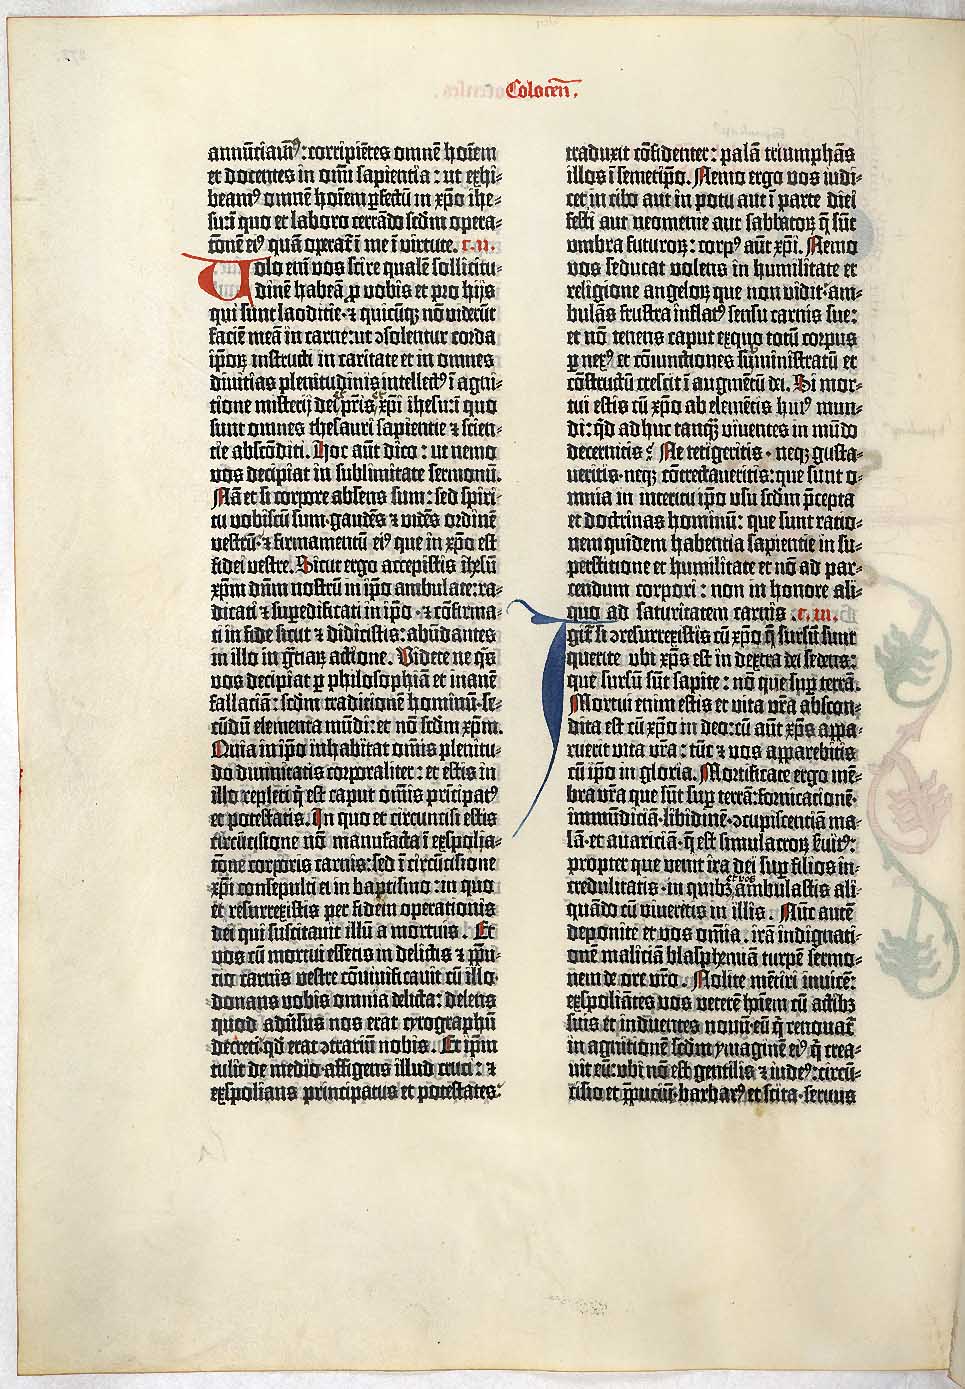 Colocen̄.
annūciamꝰ: corripiētes omnē hoīem
et docentes in omī sapientia: ut exhi-
beamꝰ omnē hoīem ꝑfectū in xp̄o ihe-
su: ī quo et laboro certādo sc̄dm opera-
cōnē eiꝰ quā operat̄ ī me ī virtute. c. ii.
Uolo em̄ vos scire qualē sollicitu-
dinē habeā ꝓ vobis et pro hijs
qui sunt laodicie · ⁊ quicūqꝫ nō viderūt
faciē meā in carne: ut ɔsolentur corda
ip̄oꝝ instructi in caritate et in omnes
divitias plenitudinis intellectꝰ ī agni-
tione misterij dei pr̄is et xp̄i ihesu: ī quo
sunt omnes thesauri sapientie ⁊ scien-
tie abscōditi. Hoc aūt dico: ut nemo
vos decipiat in sublimitate sermonū.
Nā et si corpore absens sum: sed spiri-
tu vobiscū sum · gaudēs ⁊ vidēs ordinē
vestrū · ⁊ firmamentū eiꝰ que in xp̄o est
fidei vestre. Sicut ergo accepistis ih̄esū
xp̄m dn̄m nostrū in ip̄o ambulate: ra-
dicati ⁊ suꝑedificati in ip̄o · ⁊ cōfirma-
ti in fide sicut ⁊ didicistis: abūdantes
in illo in gr̄iaꝝ actiōne. Videte ne q̄s
vos decipiat ꝑ philosophiā et inanē
fallaciā: sc̄dm traditionē hominū · se-
cūdū elementa mūdi: et nō sc̄dm xp̄m.
Quia in ip̄o inhabitat om̄is plenitu-
do divinitatis corporaliter: et estis in
illo repleti q̄ est caput om̄is prīcipatꝰ
et potestatis. In quo et circuncisi estis
circūcisione nō manufacta ī exspolia-
cōne corporis carnis: sed ī circūcisione
xp̄i consepulti ei in baptismo: in quo
et resurrexistis per fidem operationis
dei qui suscitavit illū a mortuis. Et
vos cū mortui essetis in delictis ⁊ p̄pu-
cio carnis vestre cōvivificavit cū illo
donans vobis omnia delicta: delens
quod adūsus nos erat cyrographū
decreti · qd̄ erat ɔtrariū nobis. Et ip̄m
tulit de medio affigens illud cruci: ⁊
exspolians principatus et potestates:
traduxit cōfidenter: palā triumphās
illos ī semetip̄o. Nemo ergo vos iudi-
cet in cibo aut in potu aut ī parte diei
festi aut neomenie aut sabbatoꝝ q̄ sūt
umbra futuroꝝ: corpꝰ aūt xp̄i. Nemo
vos seducat volens in humilitate et
religione angeloꝝ que non vidit · am-
bulās frustra inflatꝰ sensu carnis sue:
et nō tenens caput ex quo totū corpus
ꝑ nexꝰ et cōiunctiones sumīnistratū et
cōstructū crescit ī augmētū dei. Si mor-
tui estis cū xp̄o ab elemētis huiꝰ mun-
di: qd̄ adhuc tanqꝫ viventes in mūdo
decernitis? Ne tetigeritis · neqꝫ gusta-
veritis · neqꝫ cōtrectaveritis: que sunt o-
mnia in interitu ip̄o usu sc̄dm p̄cepta
et doctrinas hominū: que sunt ratio-
nem quidem habentia sapientie in su-
perstitione et humilitate et nō ad par-
cendum corpori: non in honore ali-
quo ad saturitatem carnis. c. iii.
Igit̄ si ɔresurrexistis cū xp̄o q̄ sursū sunt
querite ubi xp̄s est in dextra dei sedens:
que sursū sūt sapite: nō que suꝑ terrā.
Mortui enim estis et vita vr̄a abscon-
dita est cū xp̄o in deo: cū aūt xp̄s appa-
ruerit vita vr̄a: tūc ⁊ vos apparebitis
cū ip̄o in gloria. Mortificate ergo mē-
bra vr̄a que sūt suꝑ terrā: fornicationē ·
immūdiciā · libidinē · ɔcupiscentiā ma-
lā · et avariciā · q̄ est simulacroꝝ ẜvitꝰ:
propter que venit ira dei suꝑ filios in-
credulitatis · in quibꝫ et vos ambulastis ali-
quādo cū viveretis in illis. Nūc autē
deponite et vos om̄ia · irā indignati-
onē maliciā blasphemiā turpē sermo-
nem de ore vr̄o. Nolite mētiri invicē:
exspoliātes vos veterē hoīem cū actibꝫ
suis et induentes novū · eū q̄ renovat̄
in agnitionē sc̄dm ymaginē eiꝰ q̄ crea-
vit eū: ubi nō est gentilis ⁊ iudeꝰ: circū-
cisio et p̄puciū · barbarꝰ et scita · servus